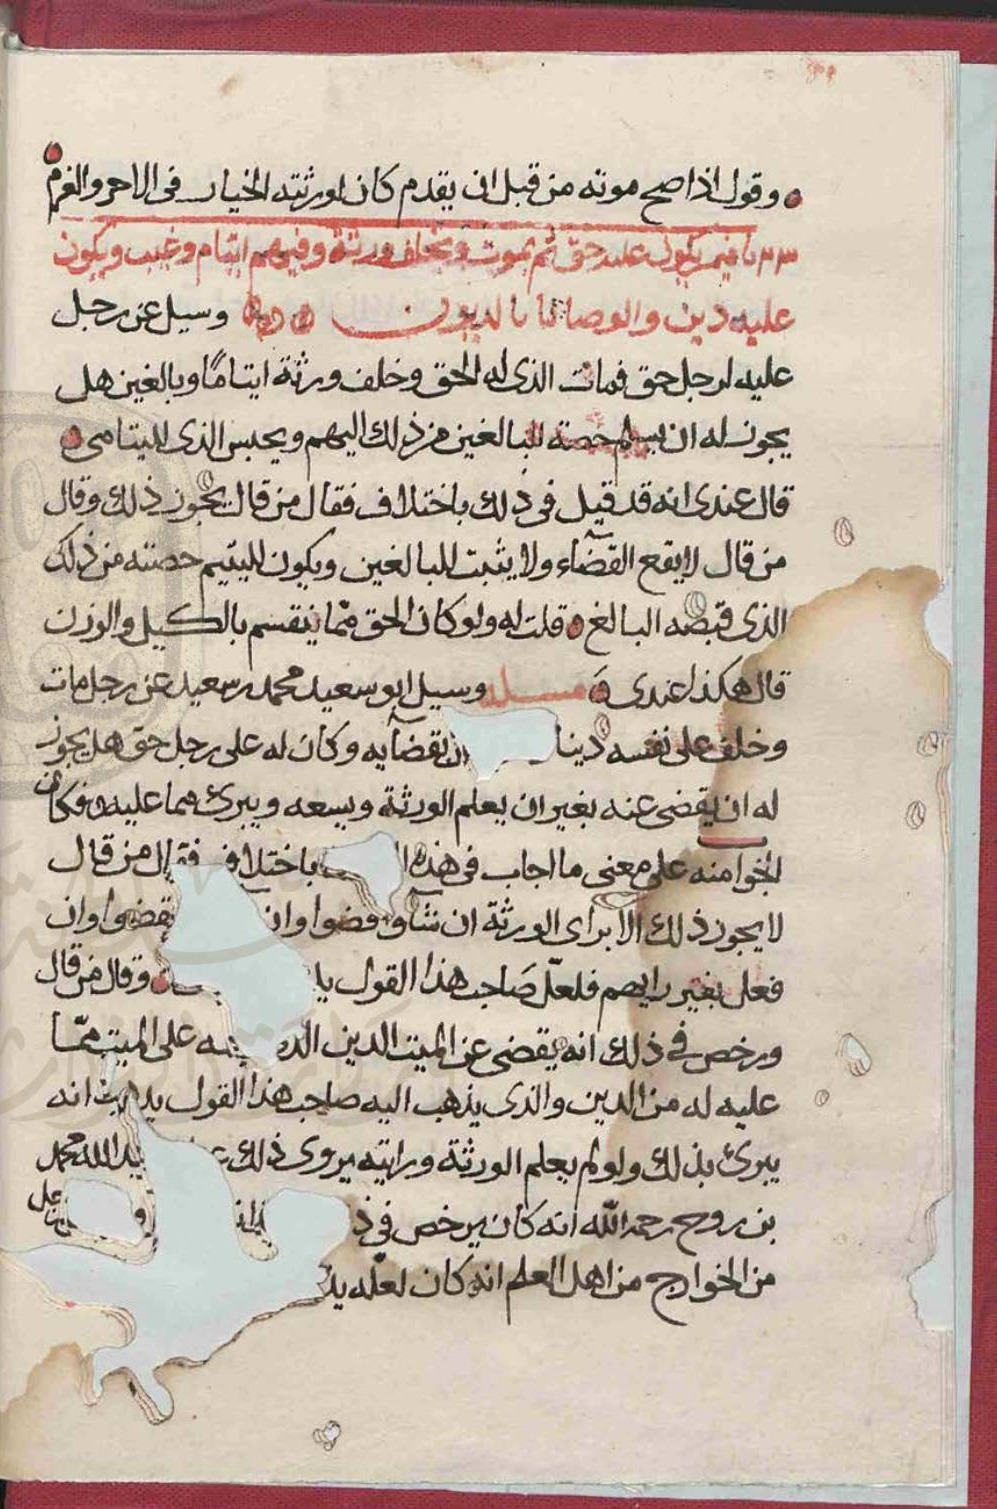 وقول اذا صح موته من قبل ان يقدم كان لورثته الخيار في الاجر والغرم
٣٣ باب فيمن يكون عليه حق ثم يموت ويخلف ورثة وفيهم ايتام وغيب ويكون
عليه دين والوصايا بالديون وسيل عن رجل
عليه لرجل حق فمات الذي له الحق وخلف ورثة ايتاما وبالغين هل
يجوز له ان يسلم حصة البالغين من ذلك اليهم ويحبس الذي لليتامى
قال عندي انه قد قيل في ذلك باختلاف فقال من قال يجوز ذلك وقال
من قال لا يقع القضاء ولا يثبت للبالغين ويكون لليتيم حصته من ذلك
الذي قبضه البالغ قلت له ولو كان الحق مما ينقسم بالكيل والوزن
قال هكذا عندي مسئلة وسيل ابو سعيد محمد بن سعيد عن رجل مات
وخلف على نفسه دينا ان يقضا به وكان له على رجل حق هل يجوز
له ان يقضي عنه بغير ان يعلم الورثة ويسعه ويبرئ مما عليه فكان
الجواب منه على معنى ما اجاب في هذه باختلاف فقال من قال
لا يجوز ذلك الا براي الورثة ان شاؤ قضوا وان يقضوا وان
فعل بغير رايهم فلعل صاحب هذا القول وقال من قال
ورخص في ذلك انه يقضي عن الميت الدين على الميت مما
عليه له من الدين والذي يذهب اليه صاحب هذا القول يذهب انه
يبرئ بذلك ولو لم يعلم الورثة ورايته يروي ذلك الله محمد
بن روح رحمه الله انه كان يرخص في
من الخوارج من اهل العلم انه كان لعله